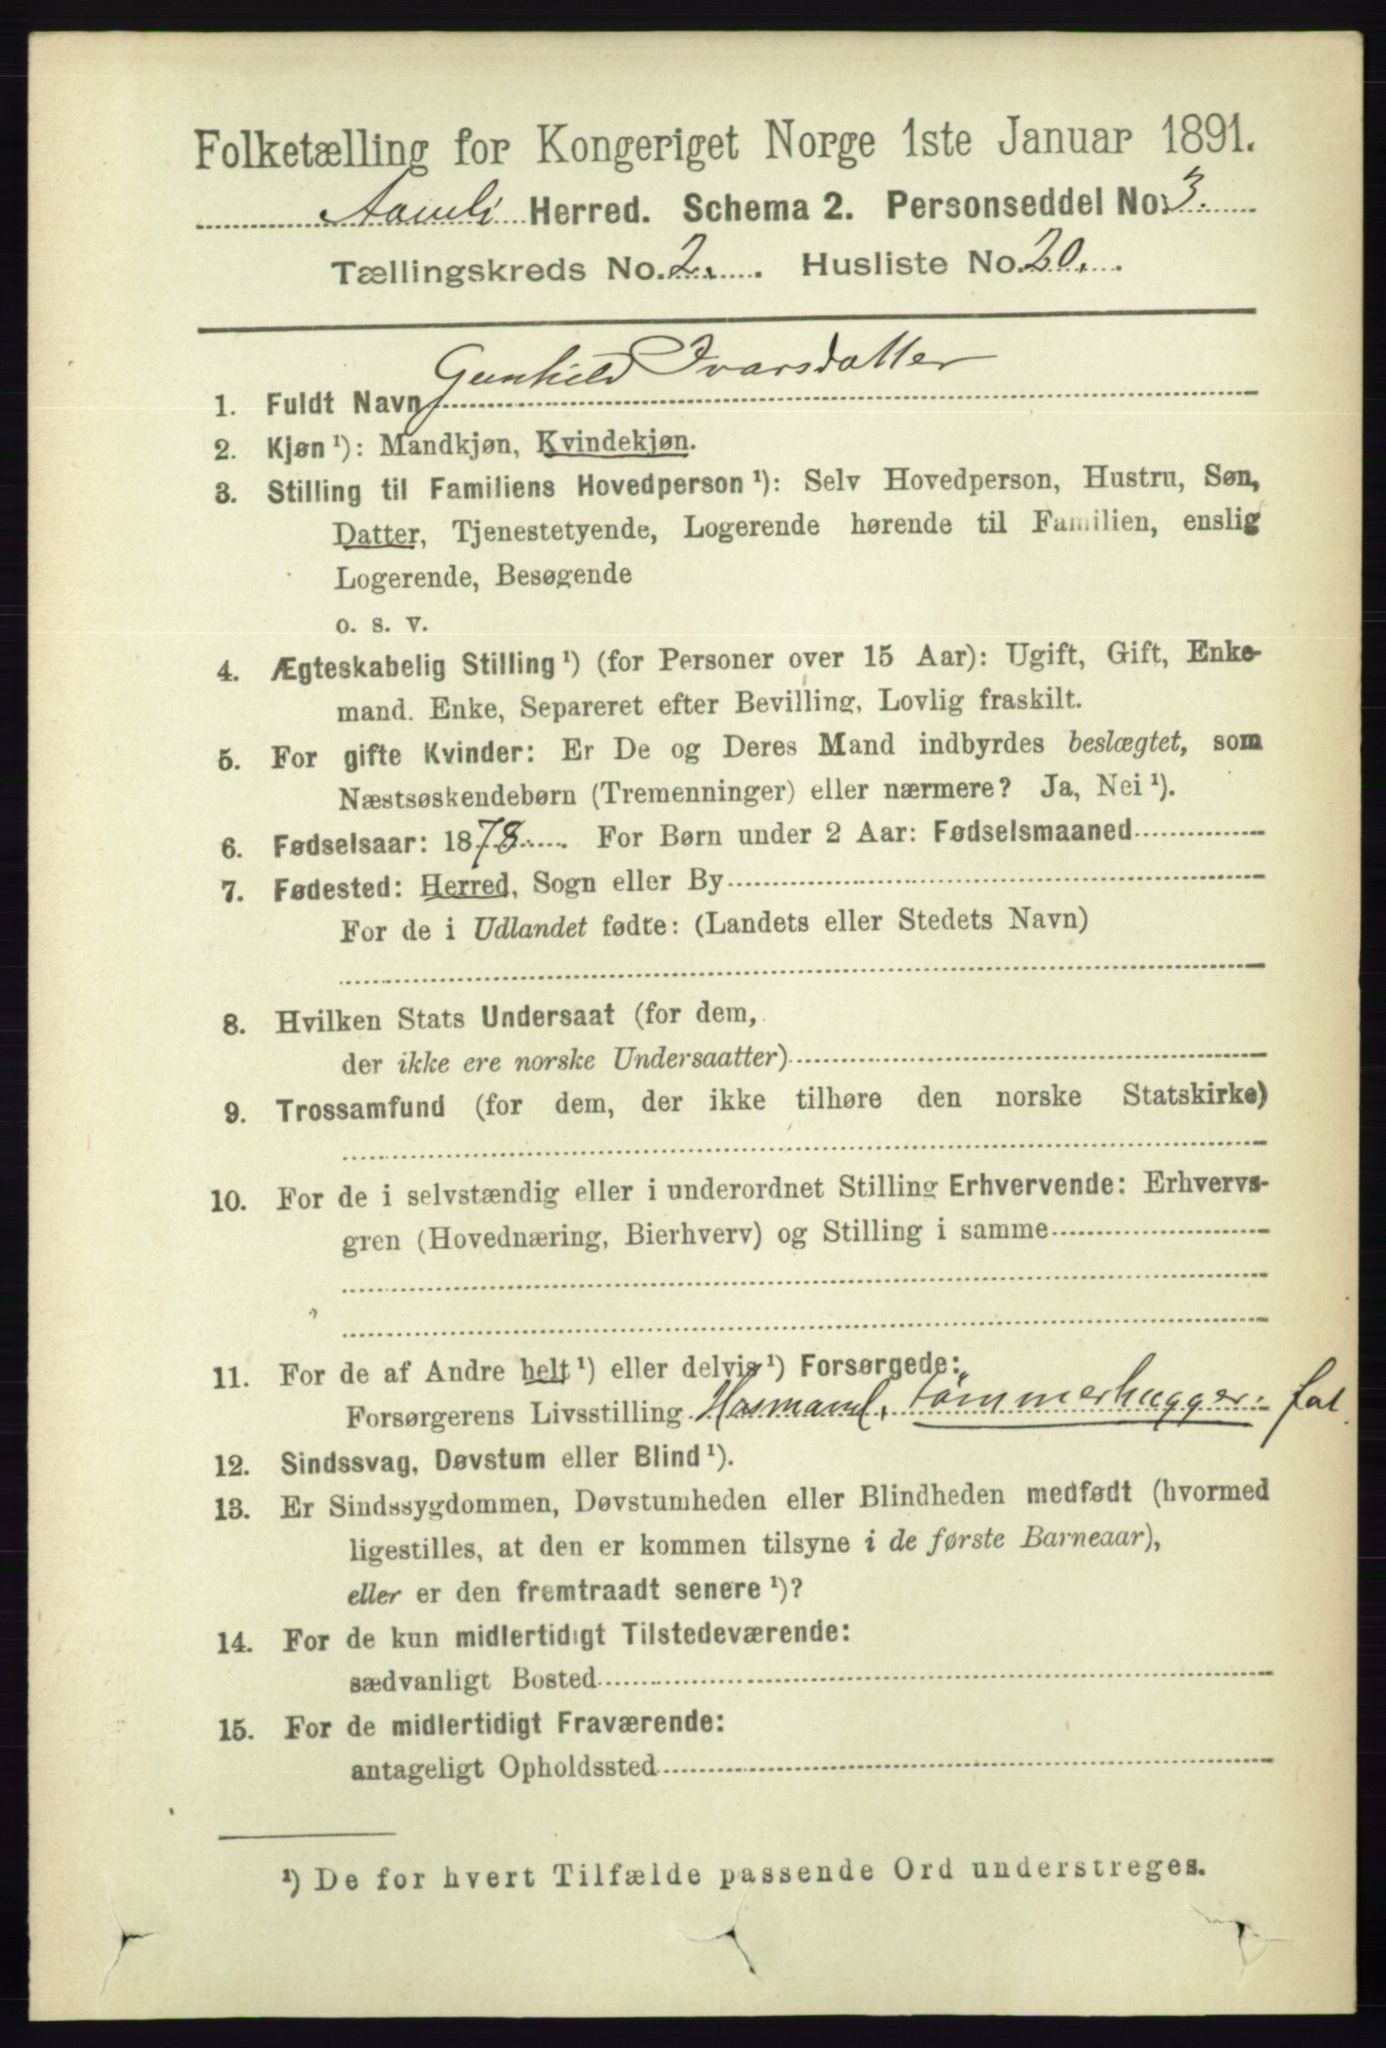 Folketælling for Kongeriget Norge 1ste Januar 1891.
Aamli Herred. Schema 2. Personseddel No. 3.
Tællingskreds No. 2. Husliste No. 20.
1. Fuldt Navn Gunhild Ivarsdatter
2. Kjøn ¹): Mandkjøn, Kvindekjøn.
3. Stilling til Familiens Hovedperson ¹): Selv Hovedperson, Hustru, Søn,
Datter, Tjenestetyende, Logerende hørende til Familien, enslig
Logerende, Besøgende
o. s. v.
4. Ægteskabelig Stilling ¹) (for Personer over 15 Aar): Ugift, Gift, Enke-
mand. Enke, Separeret efter Bevilling, Lovlig fraskilt.
5. For gifte Kvinder: Er De og Deres Mand indbyrdes beslægtet, som
Næstsøskendebørn (Tremenninger) eller nærmere? Ja, Nei ¹).
6. Fødselsaar: 1878. For Børn under 2 Aar: Fødselsmaaned
7. Fødested: Herred, Sogn eller By
For de i Udlandet fødte: (Landets eller Stedets Navn)
8. Hvilken Stats Undersaat (for dem,
der ikke ere norske Undersaatter)
9. Trossamfund (for dem, der ikke tilhøre den norske Statskirke)
10. For de i selvstændig eller i underordnet Stilling Erhvervende: Erhvervs-
gren (Hovednæring, Bierhverv) og Stilling i samme
11. For de af Andre helt ¹) eller delvis ¹) Forsørgede:
Forsørgerens Livsstilling Husmand, tømmerhugger. fat
12. Sindssvag, Døvstum eller Blind ¹).
13. Er Sindssygdommen, Døvstumheden eller Blindheden medfødt (hvormed
ligestilles, at den er kommen tilsyne i de første Barneaar),
eller er den fremtraadt senere ¹)?
14. For de kun midlertidigt Tilstedeværende:
sædvanligt Bosted
15. For de midlertidigt Fraværende:
antageligt Opholdssted
¹) De for hvert Tilfælde passende Ord understreges.